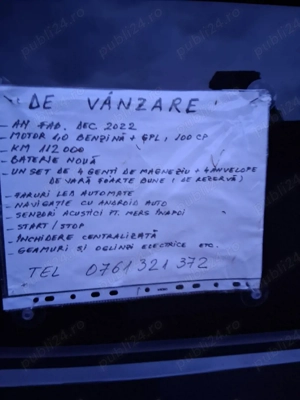 DE VÂNZARE
- AN FAB. DEC. 2022
- MOTOR 1,0 BENZINĂ + GPL, 100 CP
- KM 112000
- BATERIE NOUĂ
- UN SET DE 4 GENTI DE MAGNEZIU + 4 ANVELOPE
DE VARĂ FOARTE BUNE (DE REZERVĂ)
- FARURI LED AUTOMATE
- NAVIGATIE CU ANDROID AUTO
- SENZORI ACUSTICI PT. MERS ÎNAPOI
- START / STOP
- ÎNCHIDERE CENTRALIZATĂ
- GEAMURI ȘI OGLINZI ELECTRICE etc.
TEL 0761 321 372
publi24.ro